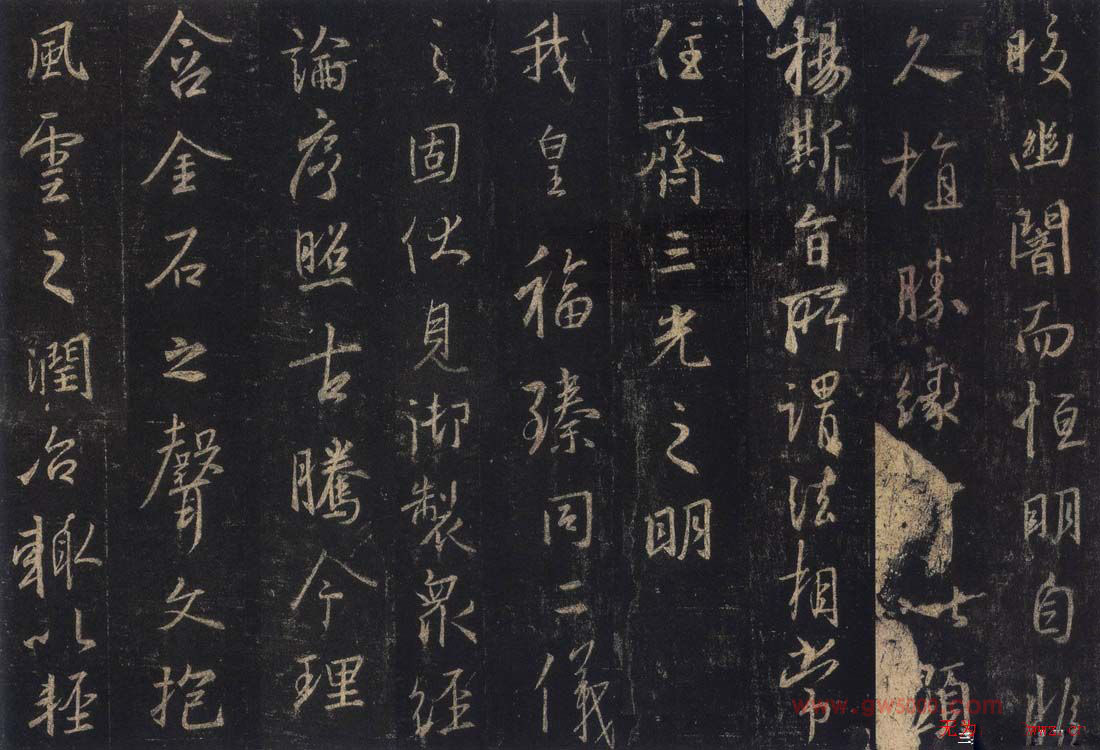 昏幽闇而恒明自非
久植勝緣何世顯
揚斯旨所謂法相常
住齊三光之明
我皇福臻同二儀
之固伏見御製眾經
論序照古騰今理
含金石之聲文抱
風雲之潤治輒以輕